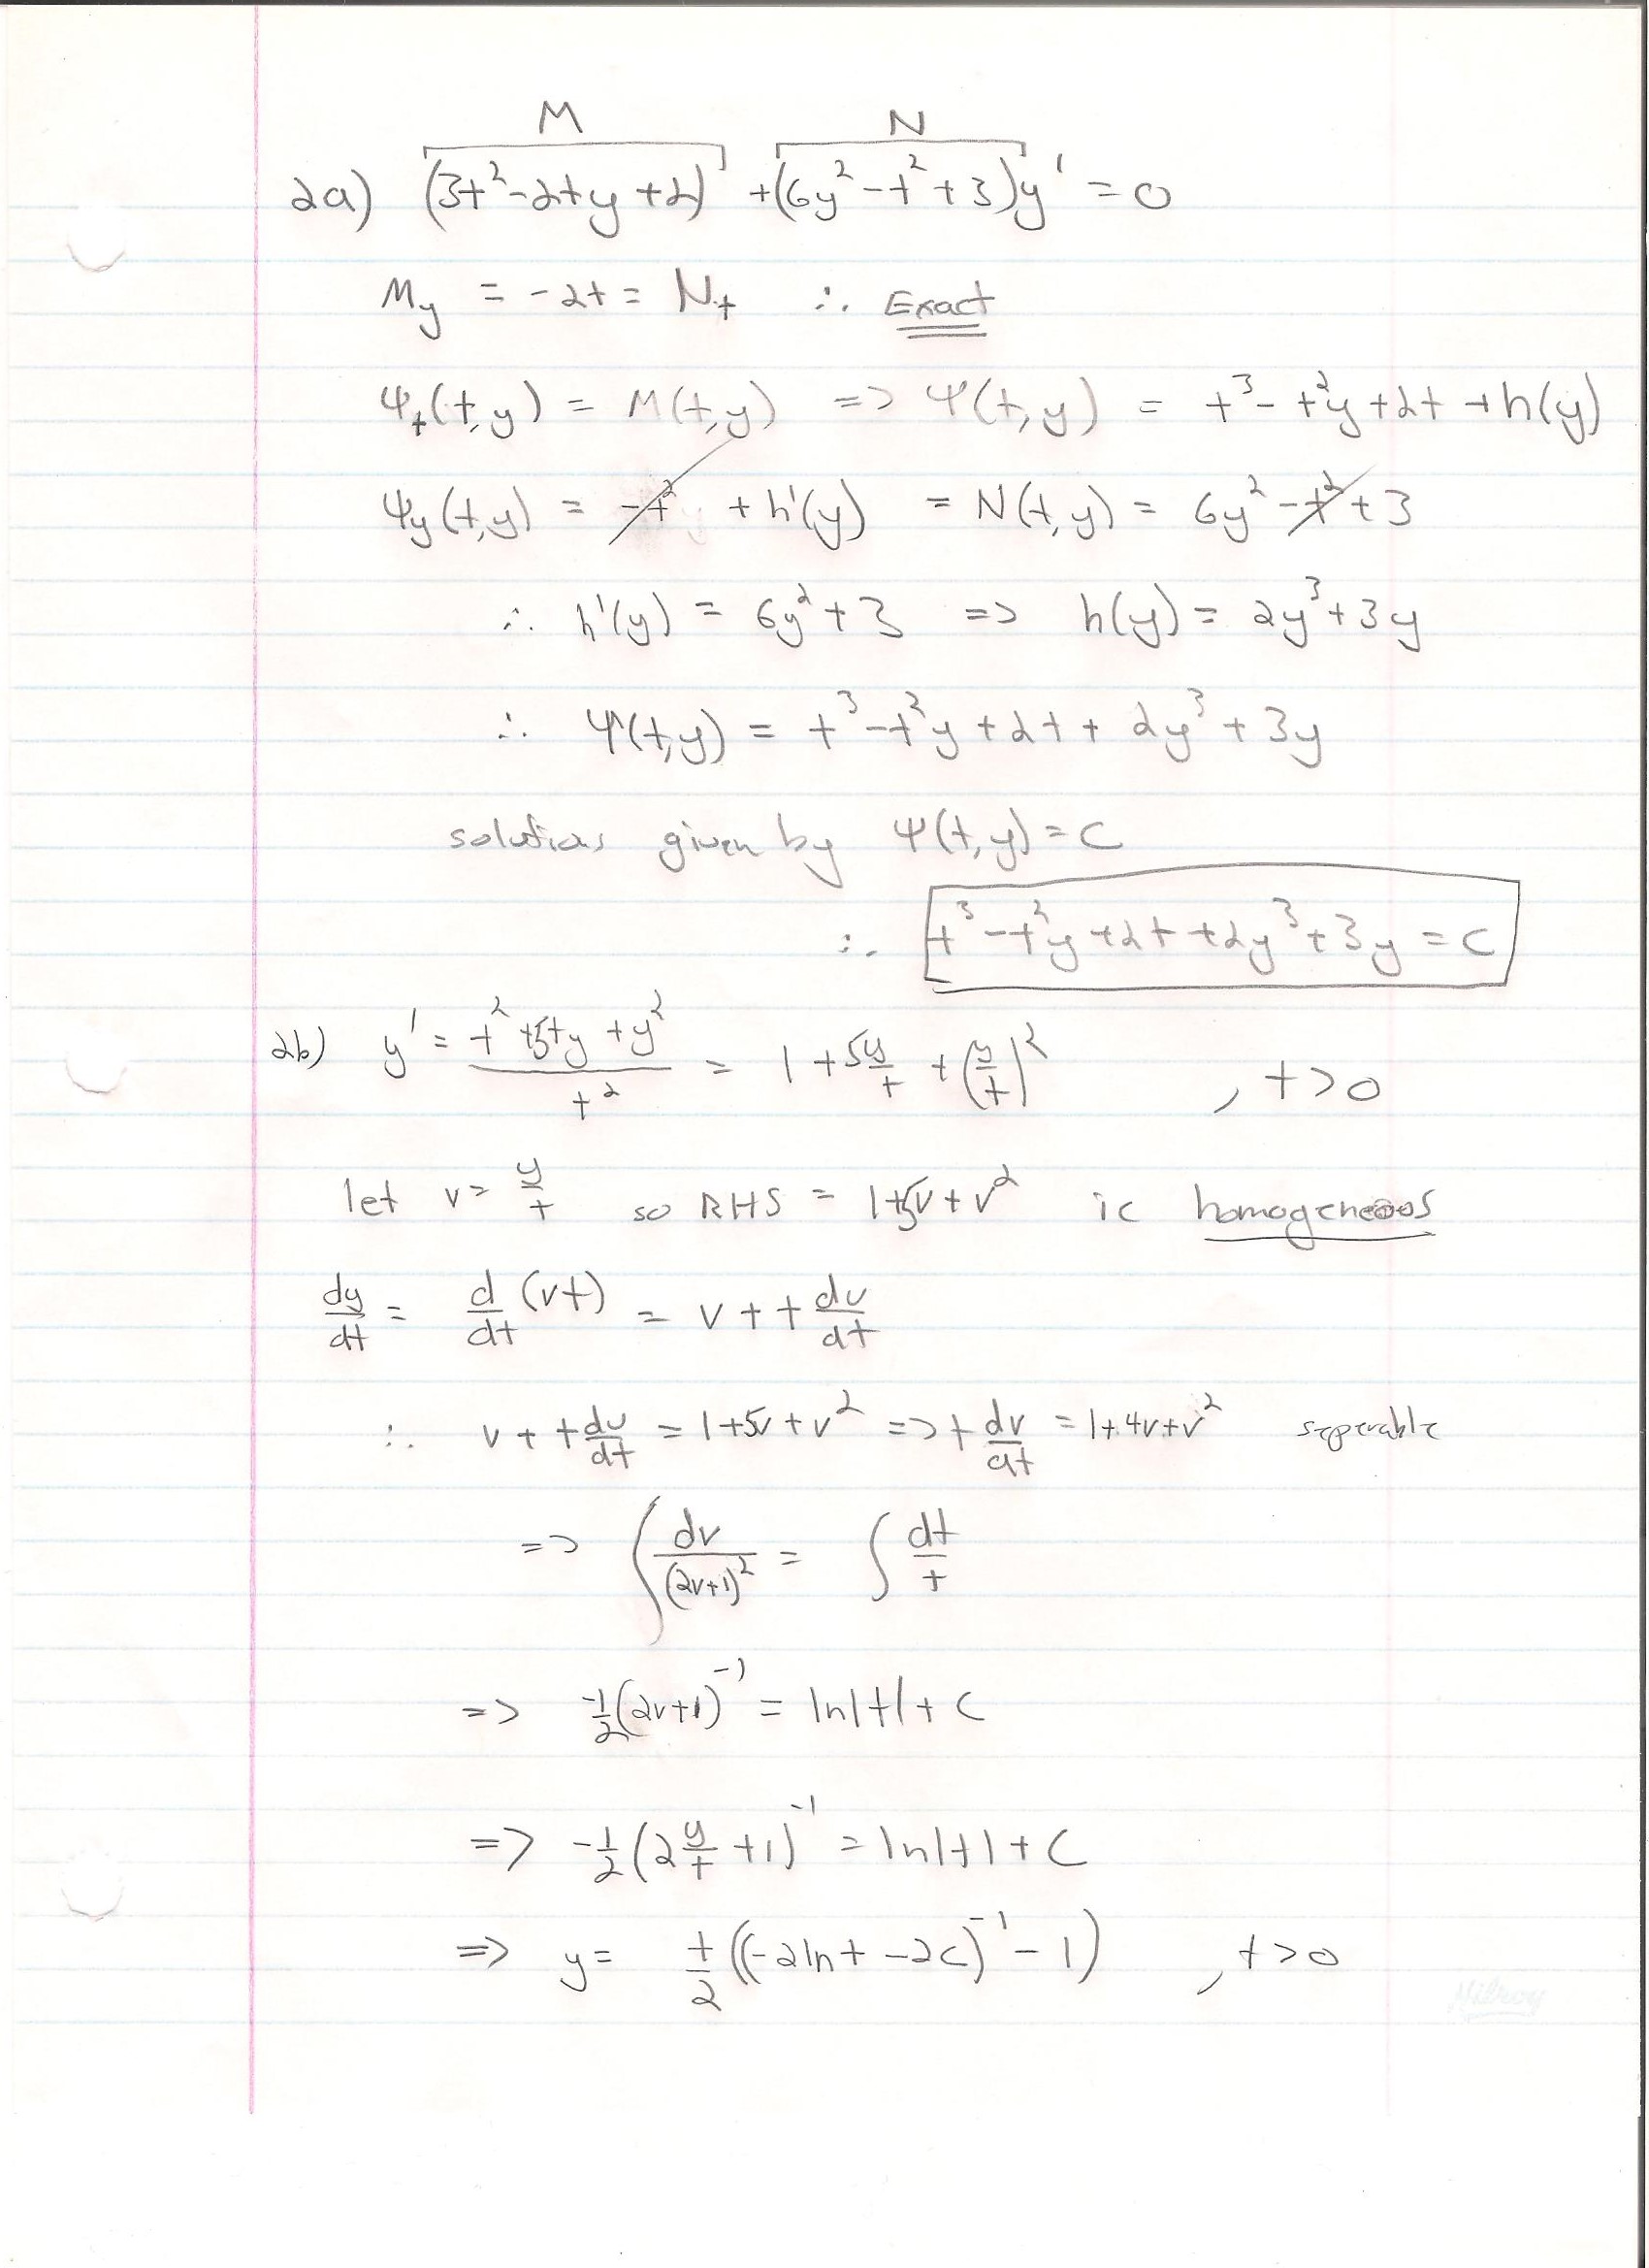 M N
2a) (3t²-2ty+2) +(6y²-t²+3)y' = 0
My = -2t = Nt ∴ Exact
Ψt(t,y) = M(t,y) => Ψ(t,y) = t³-t²y+2t+h(y)
Ψy(t,y) = -t² + h'(y) = N(t,y) = 6y²-t²+3
∴ h'(y) = 6y²+3 => h(y) = 2y³+3y
∴ Ψ(t,y) = t³-t²y+2t+2y³+3y
solutions given by Ψ(t,y)=C
∴ t³-t²y+2t+2y³+3y=C
2b) y' = (t²+5ty+y²)/t² = 1+5y/t+(y/t)² , t>0
let v= y/t so RHS = 1+5v+v² ie homogeneous
dy/dt = d/dt (vt) = v+t dv/dt
∴ v+t dv/dt = 1+5v+v² => t dv/dt = 1+4v+v² seperable
=> ∫ dv/(2v+1)² = ∫ dt/t
=> -1/2(2v+1)⁻¹ = ln|t|+C
=> -1/2(2 y/t +1)⁻¹ = ln|t|+C
=> y= t/2((-2lnt-2C)⁻¹-1) , t>0
Hilroy